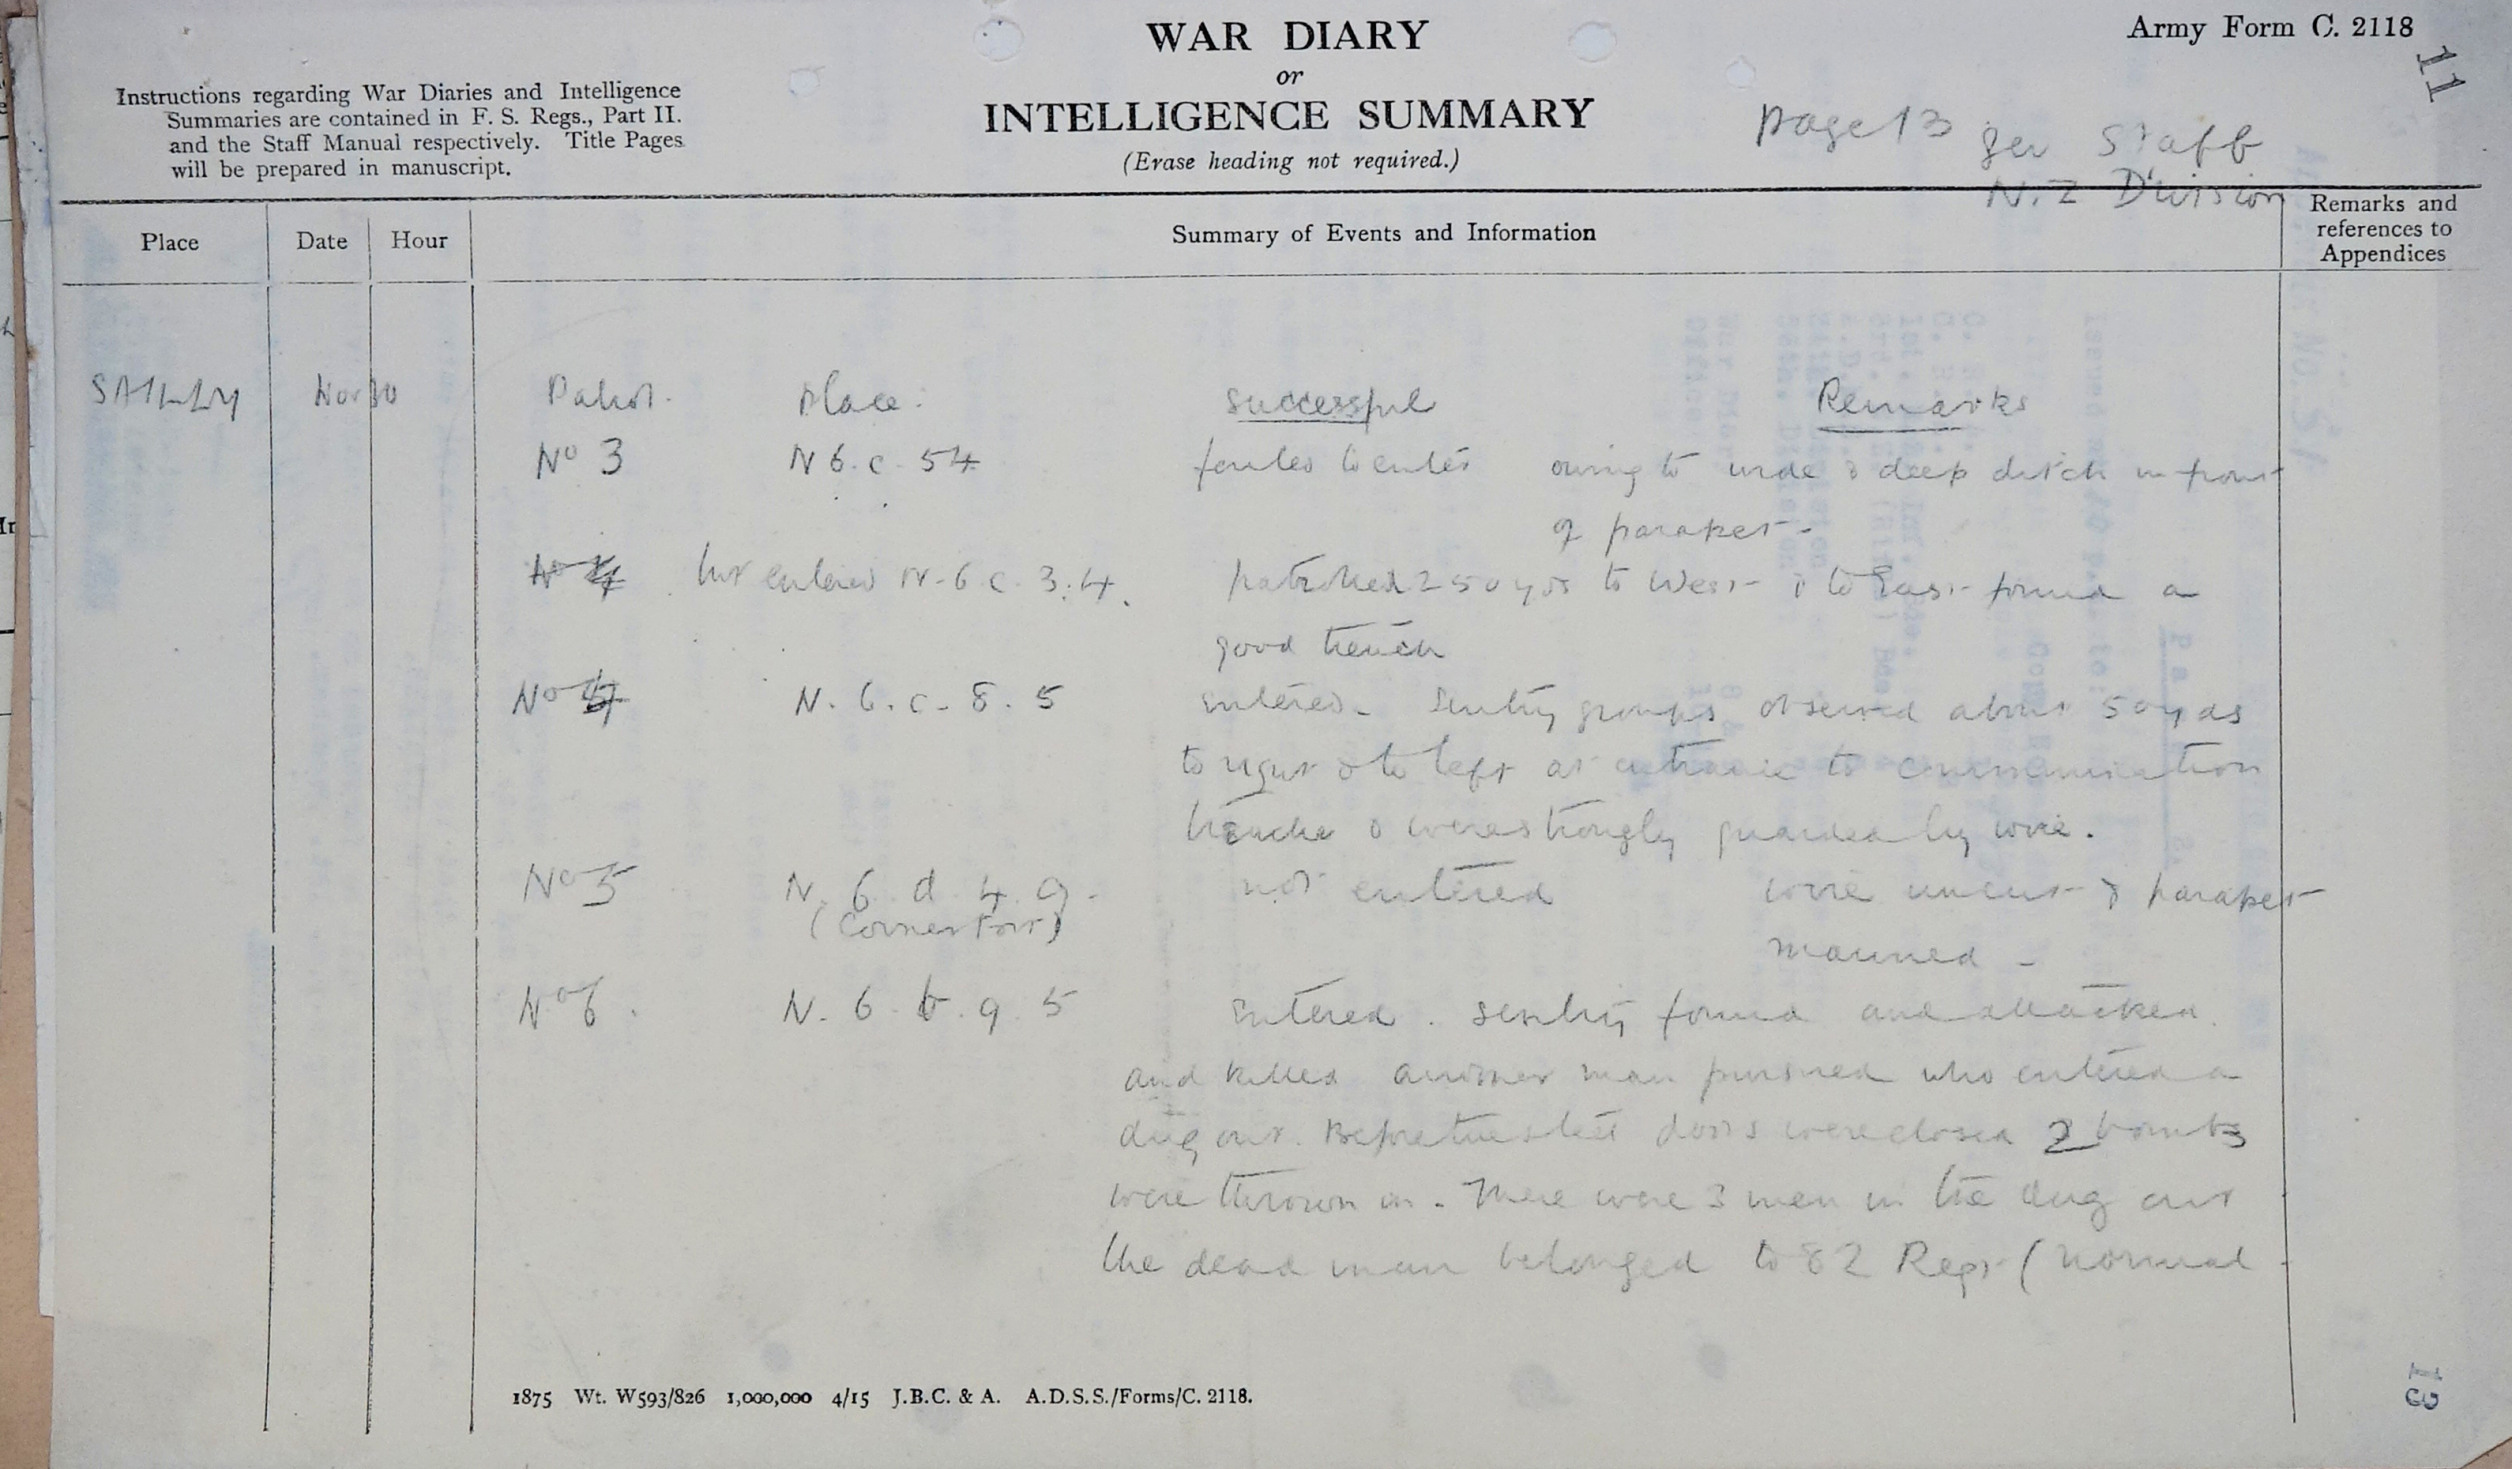 WAR DIARY
or
INTELLIGENCE SUMMARY
(Erase heading not required.)
Army Form C. 2118
11
Instructions regarding War Diaries and Intelligence
Summaries are contained in F. S. Regs., Part II.
and the Staff Manual respectively. Title Pages
will be prepared in manuscript.
Page 13
Gen Staff
N.Z Division
Place Date Hour Summary of Events and Information Remarks and references to Appendices
SAILLY Nov 30 Patrol. Place. Successful Remarks
No 3 N 6. c. 54 failed to enter owing to wide & deep ditch in front
of parapet -
but entered N. 6 c. 3.4. patrolled 250 yds to West & to East found a
good trench
No 4 N. 6. c. 8. 5 entered. Sentry groups observed about 50 yds
to right & to left at entrance to communication
trenches & were strongly guarded by wire.
No 5 N. 6 d 4 9. not entered wire uncut & parapet
(Corner Fort)
manned -
No 6. N. 6 b. 9 5 Entered. sentry found and attacked
and killed another man pursued who entered a
dug out. Before the steel doors were closed 2 bombs
were thrown in. There were 3 men in the dug out
the dead man belonged to 82 Regt (normal
1875 Wt. W593/826 1,000,000 4/15 J.B.C. & A. A.D.S.S./Forms/C. 2118.
13